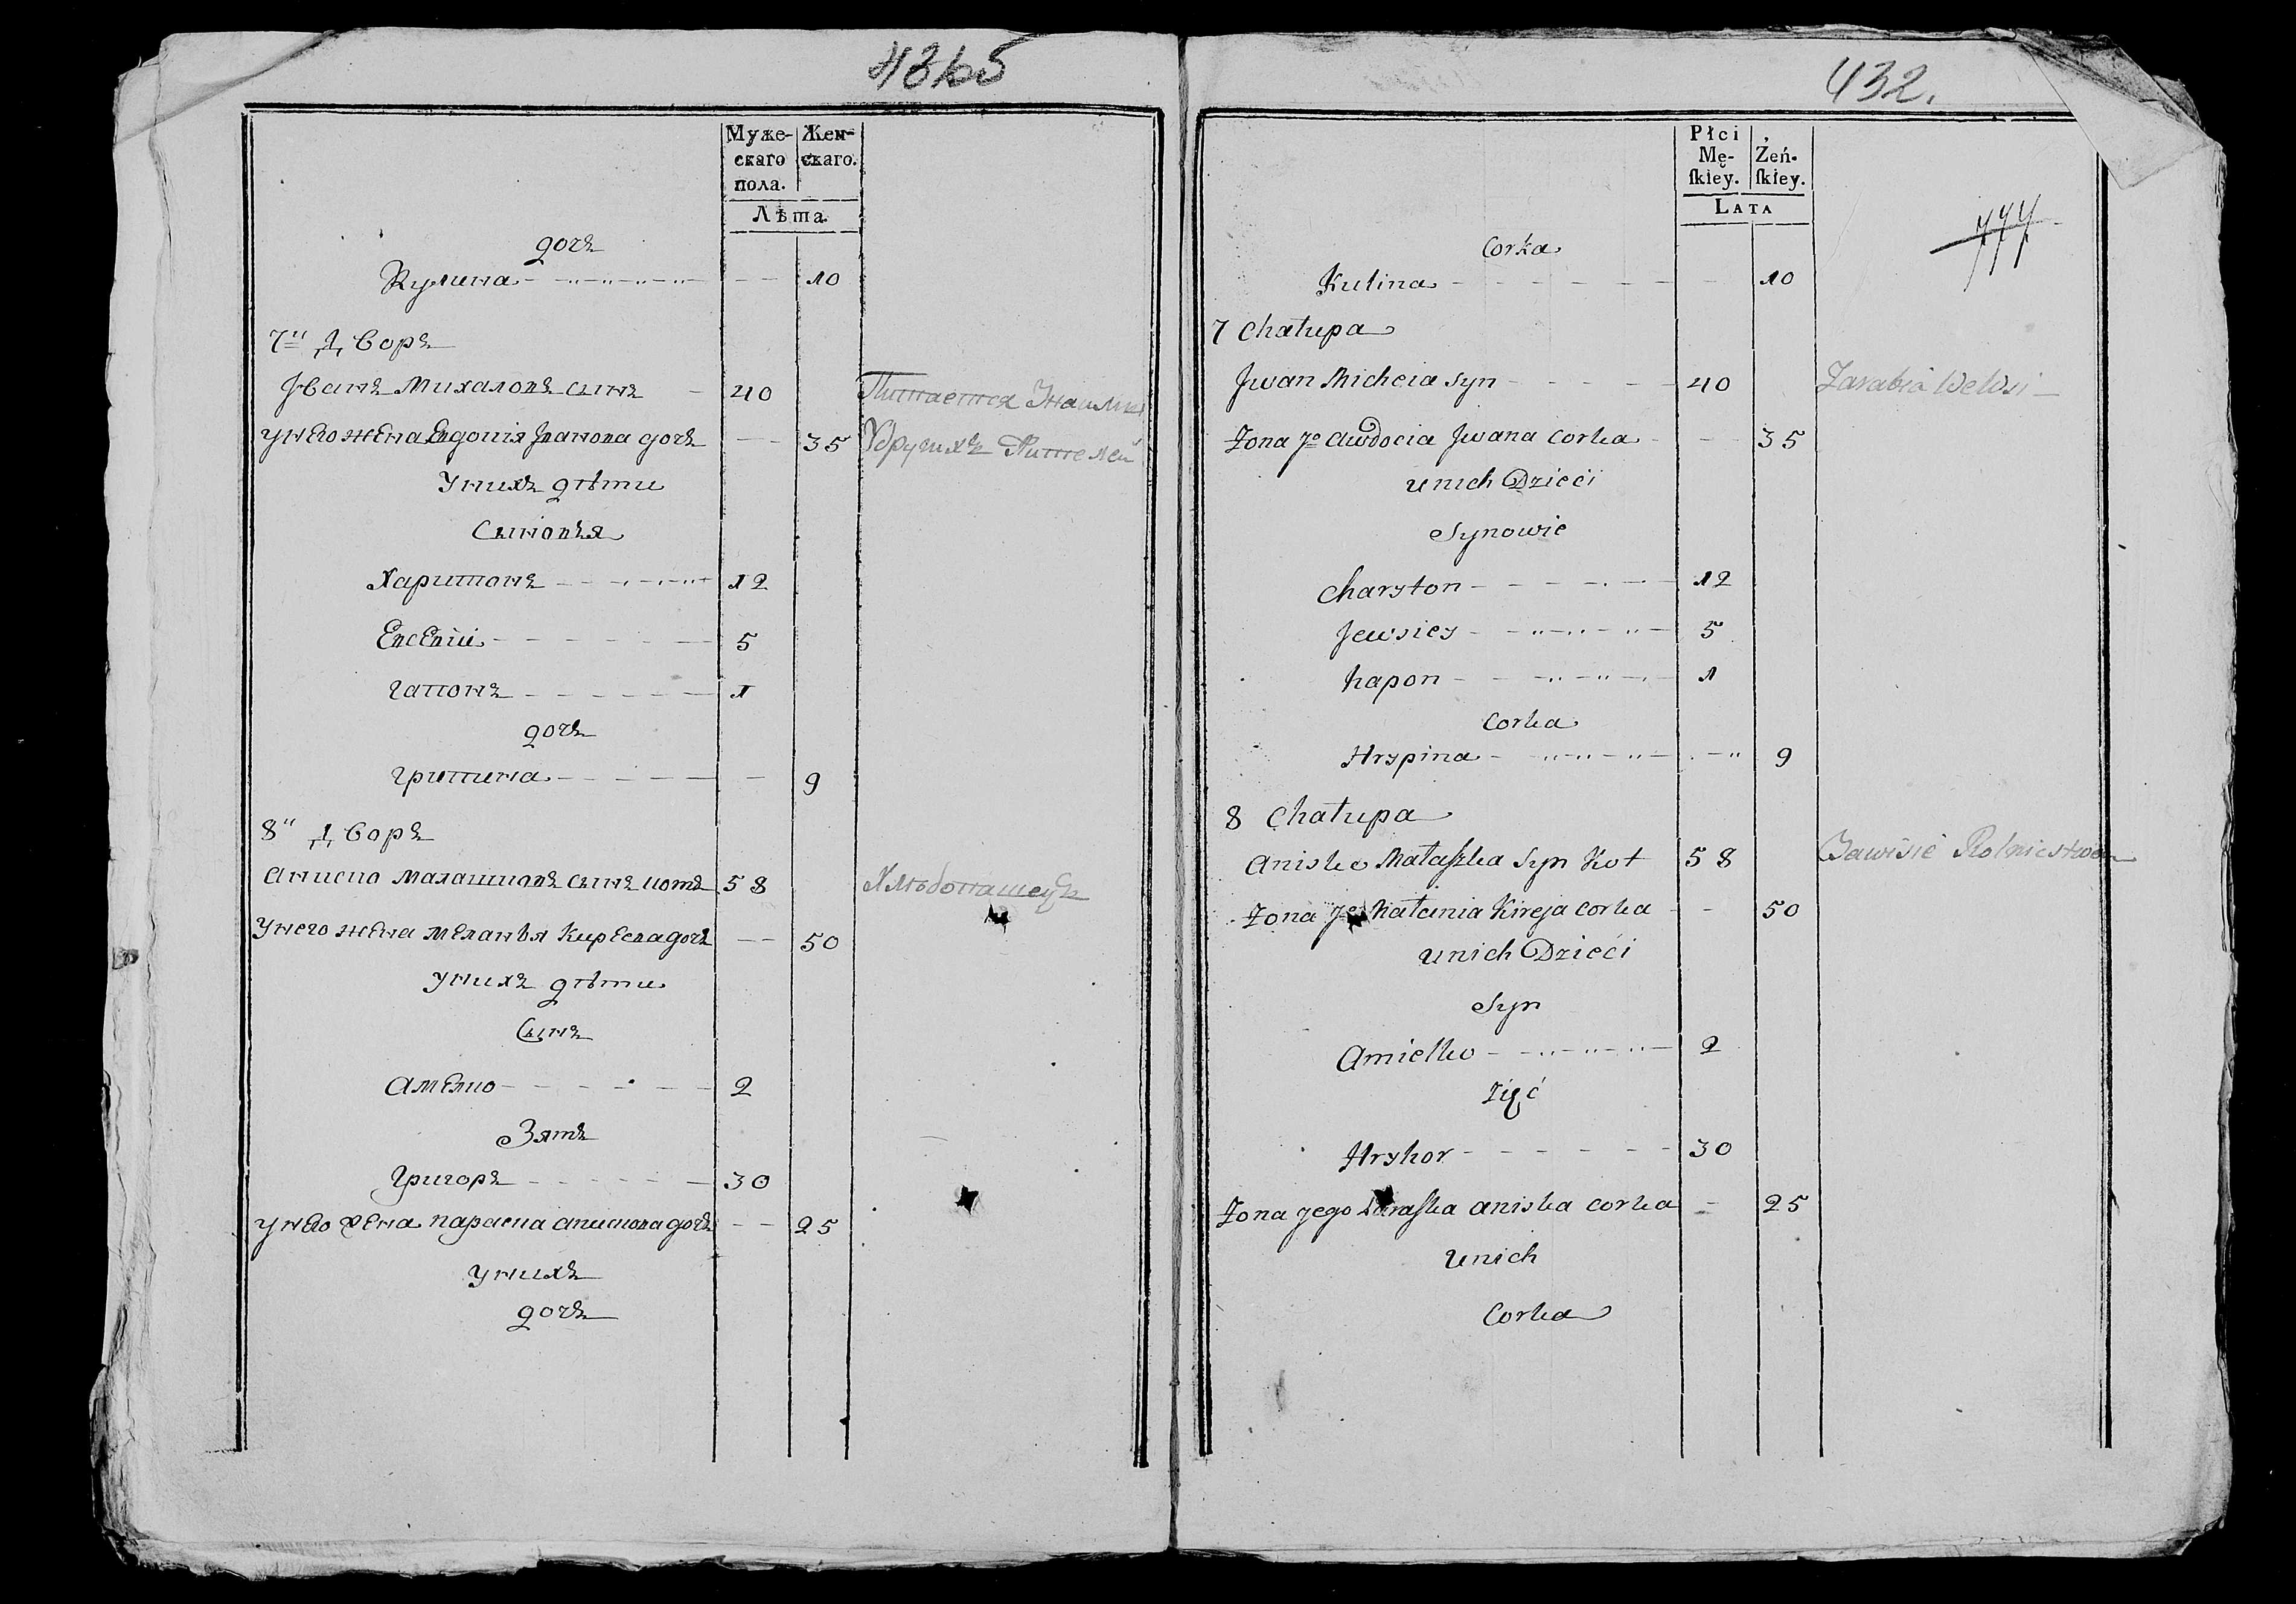 Муже-
скаго
пола.
Жен-
скаго.
Лѣта.
дочъ
Кулина 10
7й Дворъ
Иванъ Михаловъ сынъ 40
Питается
У него жена Евдокия Иванова дочъ 35
У другихъ Жителей
У нихъ дѣти
Сыновья
Харитонъ 12
Евсевій 5
Гапонъ 1
дочъ
Грипина 9
8й Дворъ
Аниско Малашковъ сынъ Котъ 58
Хлѣбопашецъ
У него жена Меланья Киреева дочъ 50
У нихъ дѣти
Сынъ
Амелко 2
Зять
Григоръ 30
У него жена Параска Анискова дочъ 25
У нихъ
дочъ
432.
Płci
Mę-
skiey.
Żeń-
skiey.
LATA
777
Corka
Kulina 10
7 Chałupa
Jwan Micheia Syn 40
Zarabia we Wsi
Zona jo Awdocia Jwana Corka 35
u nich Dzieci
Synowie
Charyton 12
Jewsiey 5
Hapon 1
Corka
Hrypina 9
8 Chałupa
Anisko Małaszka Syn Kot 58
Bawi sie Rolnictwem
Zona jo Małania Kireja Corka 50
u nich Dzieci
Syn
Amielko 2
Zięć
Hryhor 30
Zona jego Paraska Aniska Corka 25
u nich
Corka